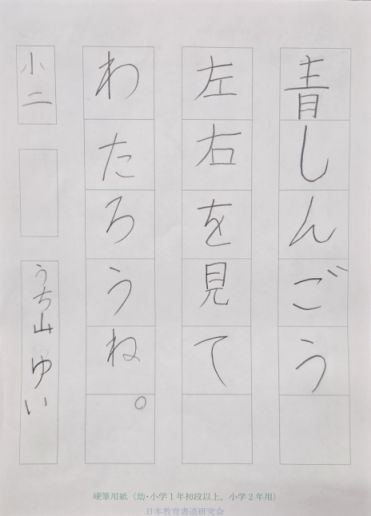 青しんごう
左右を見て
わたろうね。
小二
うち山ゆい
硬筆用紙（幼・小学1年初段以上、小学2年用）
日本教育書道研究会